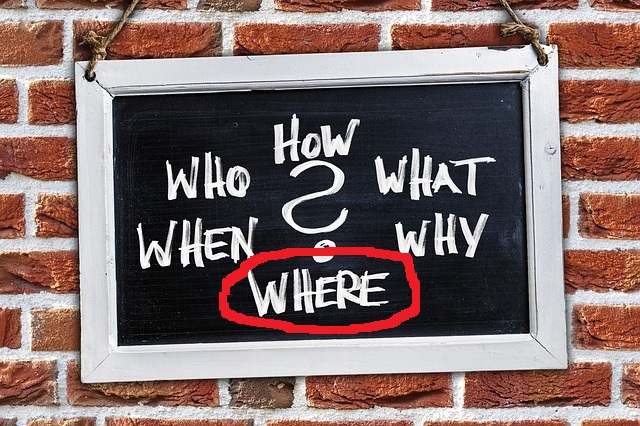 HOW
WHO
WHAT
?
WHEN
WHY
WHERE